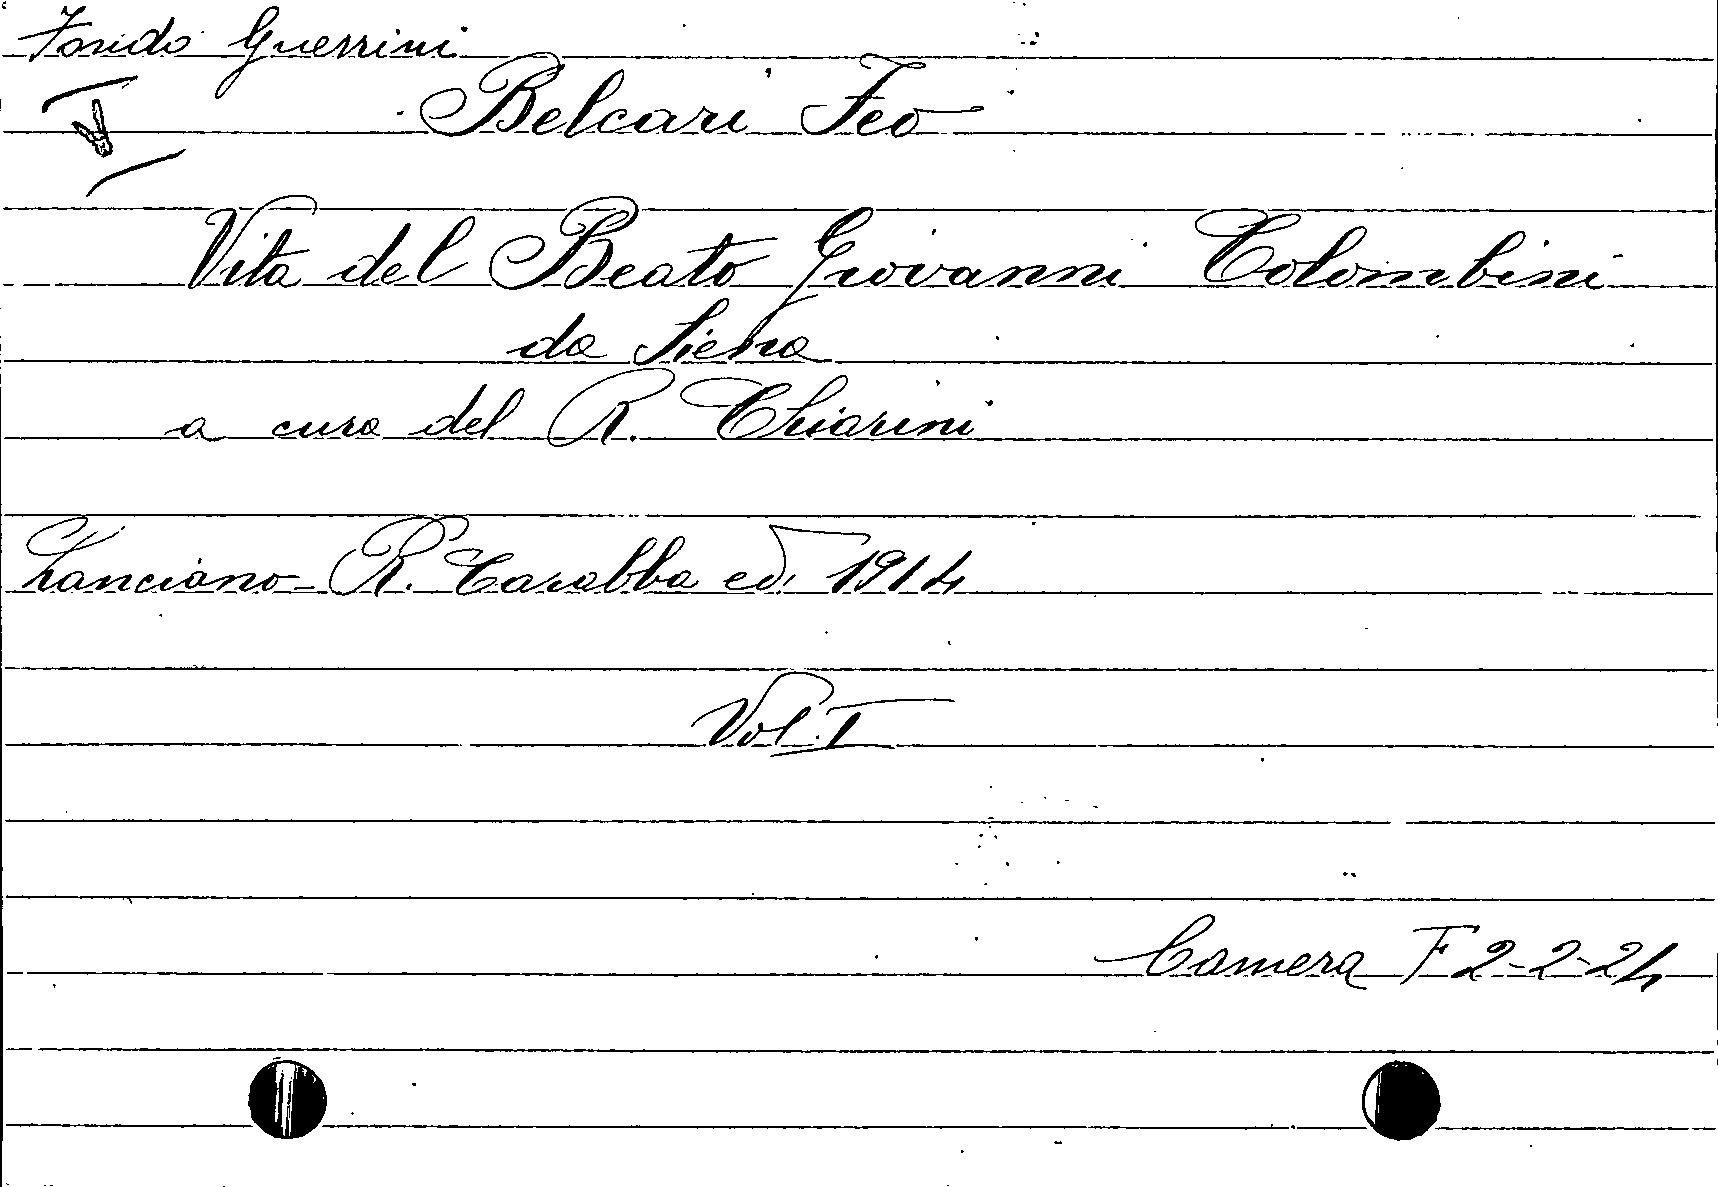 Fondo Guerrini
Belcari Feo
Vita del Beato Giovanni Colombini
da Siena
a cura del R. Chiarini
Lanciano - R. Carabba ed. 1914
Vol. I
Camera F 2-2-24